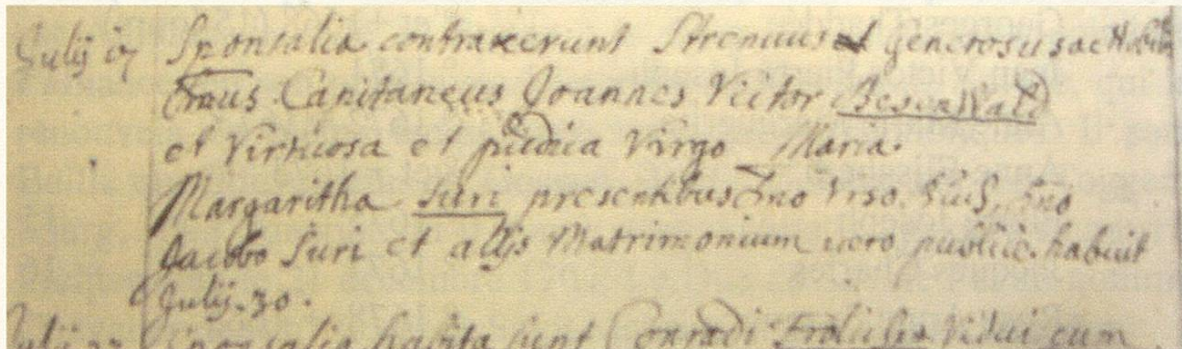 Julij 17 Sponsalia contraxerunt Strenuus et Generosus ac Nobilis
Dnus Capitaneus Joannes Victor Besenwald
et Virtuosa et pudica Virgo Maria
Margaritha Suri presentibus Dno Urso Suri, Dno
Jacobo Suri et alijs Matrimonium vero publice habuit
Julij 30.
Sponsalia habita sunt Conradi Vidui cum